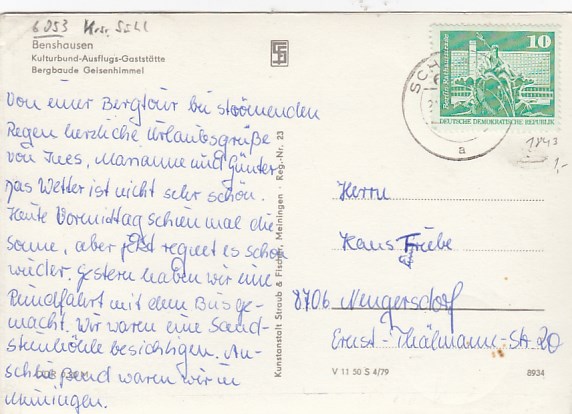 6053 Krs. Suhl
Benshausen
Kulturbund-Ausflugs-Gaststätte
Bergbaude Geisenhimmel
Von einer Bergtour bei strömenden
Regen herzliche Urlaubsgrüße
von Ines, Marianne und Günter.
Das Wetter ist nicht sehr schön.
Heute Vormittag schien mal die
Sonne, aber jetzt regnet es schon
wieder. Gestern haben wir eine
Rundfahrt mit dem Bus ge-
macht. Wir waren eine Sand-
steinhöhle besichtigen. An-
schließend waren wir in
Meiningen.
Kunstanstalt Straub & Fischer, Meiningen · Reg.-Nr. 23
10
Berlin
DEUTSCHE DEMOKRATISCHE REPUBLIK
SCH
a
1843
1,-
Herrn
Hans Friebe
8706 Neugersdorf
Ernst-Thälmann-Str. 20
V 11 50 S 4/79
8934